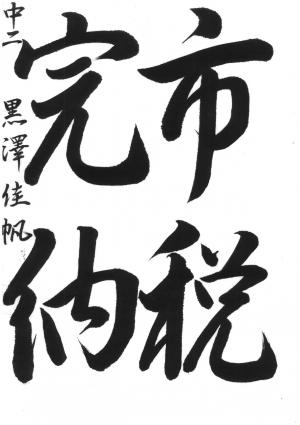 市税
完納
中二 黒澤佳帆